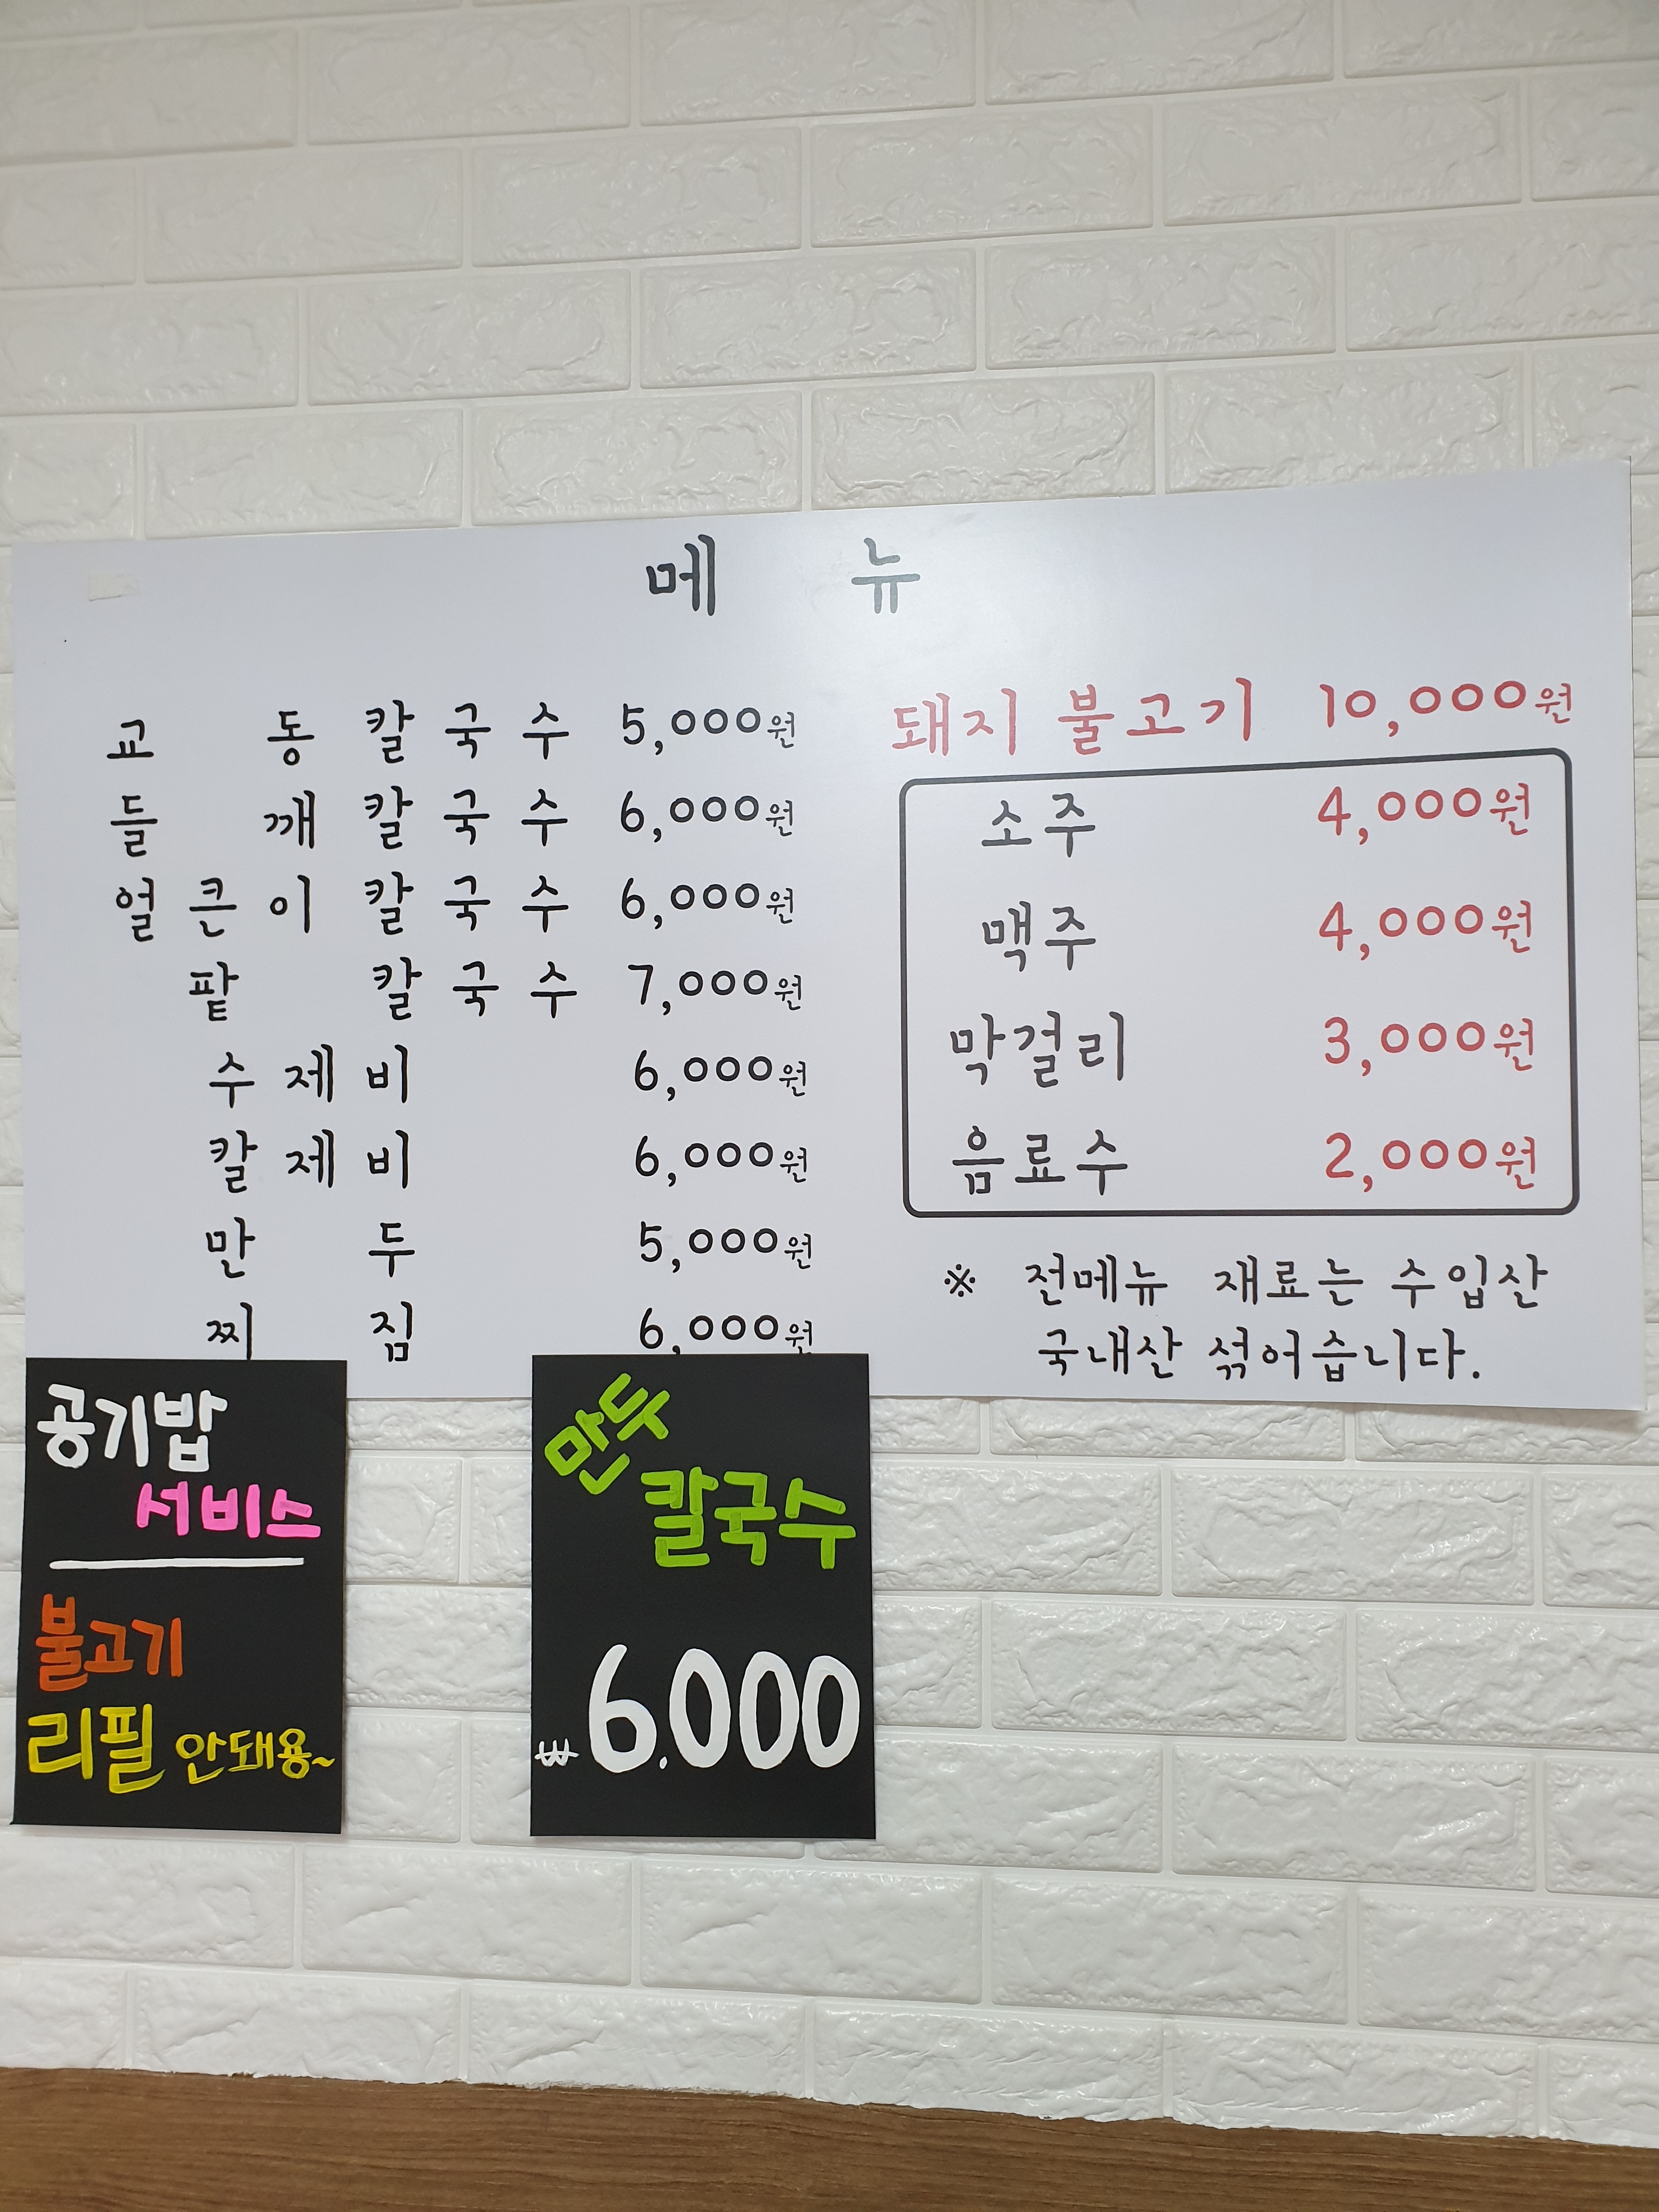 메 뉴
교 동 칼 국 수 5,000원
들 깨 칼 국 수 6,000원
얼 큰 이 칼 국 수 6,000원
팥 칼 국 수 7,000원
수 제 비 6,000원
칼 제 비 6,000원
만 두 5,000원
찌 짐 6,000원
돼지 불고기 10,000원
소주 4,000원
맥주 4,000원
막걸리 3,000원
음료수 2,000원
※ 전메뉴 재료는 수입산
국내산 섞어습니다.
공기밥
서비스
불고기
리필 안돼용~
만두
칼국수
₩6.000